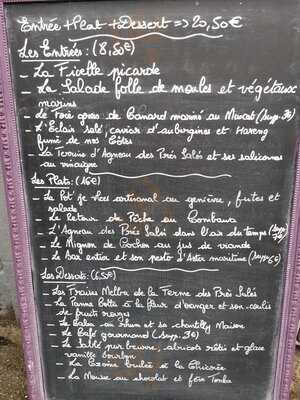 Entrée + Plat + Dessert => 20,50€
Les Entrées: (8,50€)
- La Ficelle picarde
- La Salade folle de moules et végétaux
marins
- Le Foie gras de Canard mariné au (Sup. 3€)
- L'Eclair salé, caviar d'aubergines et Hareng
fumé de nos Côtes
- La Terrine d'Agneau des Prés Salés et ses salicornes
au vinaigre
Les Plats: (16€)
- Le Pot je vlees artisanal au genièvre, frites et
salade
- Le Retour de Pêche au Combawa
- L'Agneau des Prés Salés dans l'air du temps (Sup
- Le Mignon de Cochon au jus de viande
- Le Bar entier et son pesto d'Aster maritime (Sup
Les Desserts: (6,50€)
- Le Fraises Melba de la Ferme des Prés Salés
- La Panna Cotta à la fleur d'oranger et son coulis
de fruits rouges
- Le Baba au rhum et sa chantilly Maison
- Le Café gourmand (Sup. 3€)
- Le Sablé pur beurre, abricots rôtis et glace
vanille bourbon
- La Crème brûlée à la Chicorée
- La Mousse au chocolat et fève Tonka